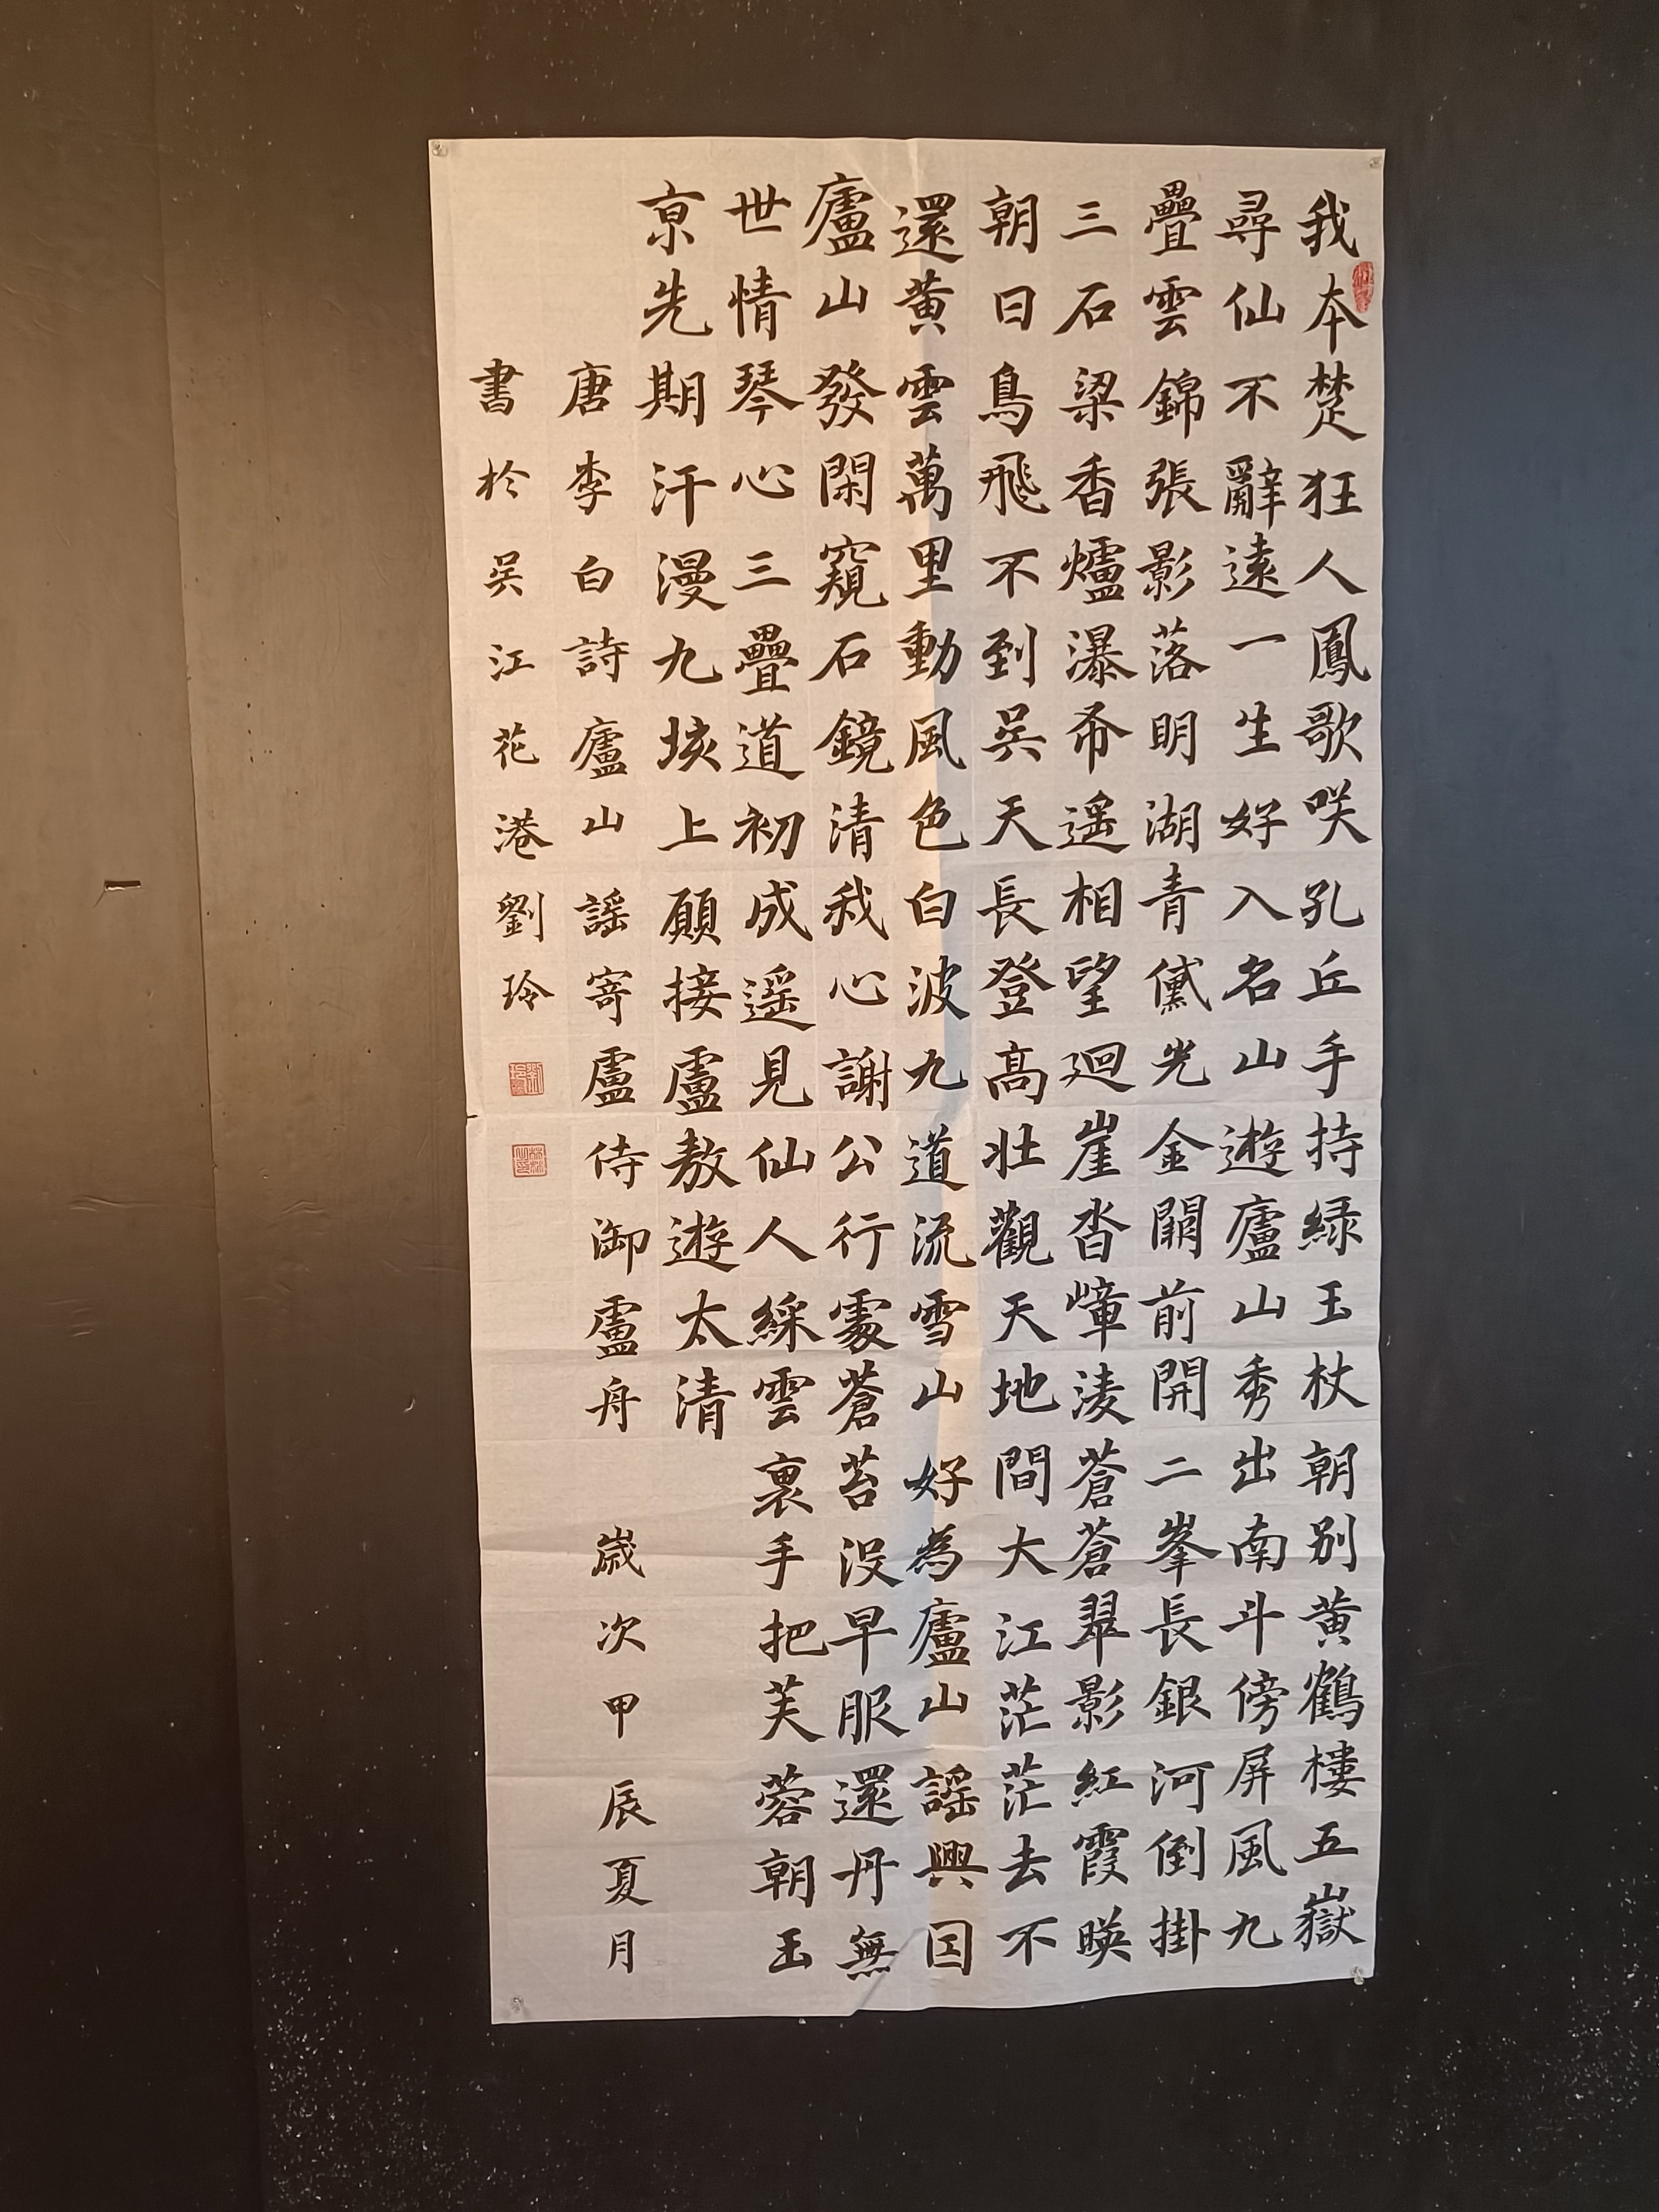 我本楚狂人鳳歌咲孔丘手持緑玉杖朝别黄鶴樓五嶽
尋仙不辭遠一生好入名山遊廬山秀出南斗傍屏風九
疊雲錦張影落明湖青黛光金闕前開二峯長銀河倒掛
三石梁香爐瀑布遥相望迴崖沓嶂淩蒼蒼翠影紅霞暎
朝日鳥飛不到吳天長登髙壯觀天地間大江茫茫去不
還黄雲萬里動風色白波九道流雪山好為廬山謡興因
廬山發閑窺石鏡清我心謝公行處蒼苔没早服還丹無
世情琴心三疊道初成遥見仙人綵雲裏手把芙蓉朝玉
京先期汗漫九垓上願接盧敖遊太清
唐李白詩廬山謡寄盧侍御盧舟 歲次甲辰夏月
書於吳江花港劉玲